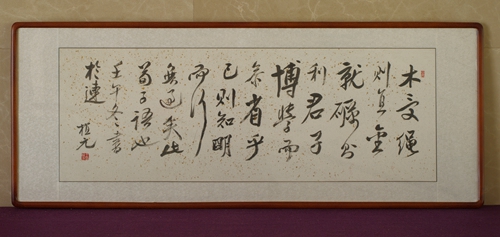 木受绳
则直金
就砺则
利君子
博学而
参省乎
己则知明
而行
无过矣此
荀子语也
壬午冬书
於连